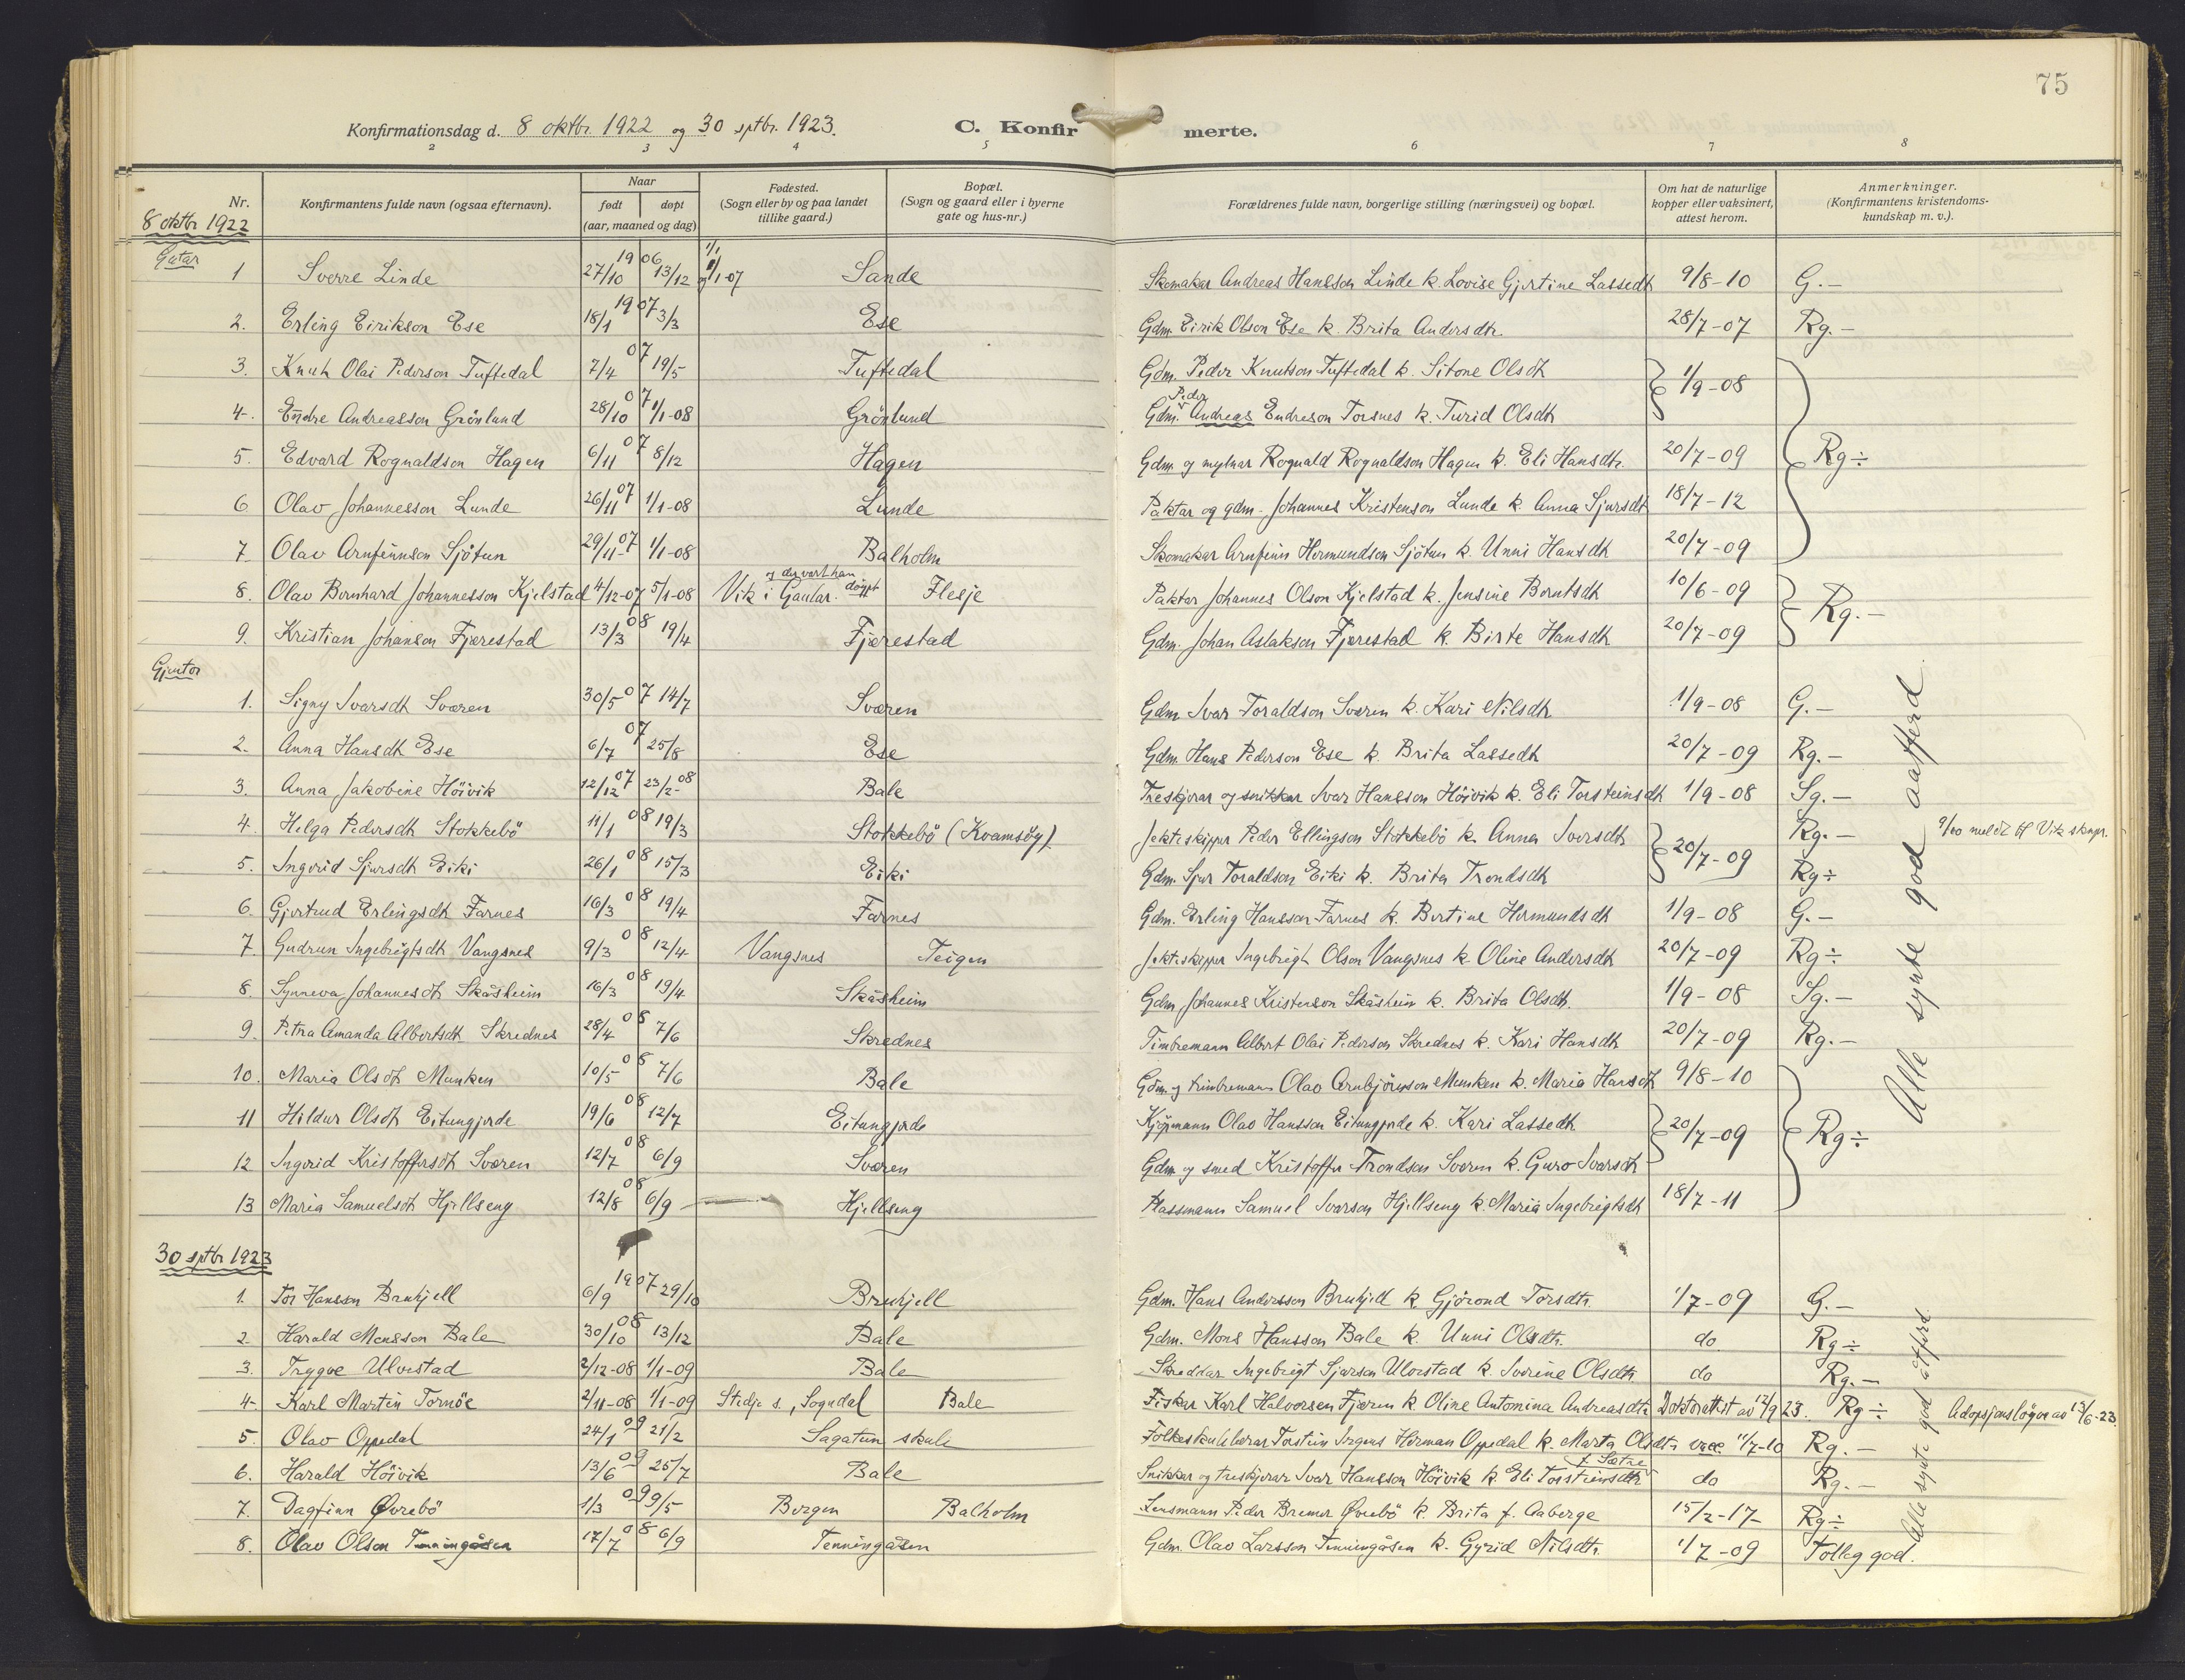 75
Konfirmationsdag d. 8 oktbr. 1922 og 30 sptbr. 1923.
C. Konfirmerte.
2 3 4 5 6 7 8
Nr.
Konfirmantens fulde navn (ogsaa efternavn).
Naar
født døpt
(aar, maaned og dag)
Fødested.
(Sogn eller by og paa landet
tillike gaard.)
Bopæl.
(Sogn og gaard eller i byerne
gate og hus-nr.)
Forældrenes fulde navn, borgerlige stilling (næringsvei) og bopæl.
Om hat de naturlige
kopper eller vaksinert,
attest herom.
Anmerkninger.
(Konfirmantens kristendoms-
kundskap m. v.).
8 oktbr 1922
Gutar
1 Sverre Linde 27/10 1906 13/12 og 1/1-07 Sande Skomakar Andreas Hansson Linde k. Lovise Gjertine Lassedt 9/8-10 G.-
2. Erling Eirikson Ese 18/1 1907 3/3 Ese Gdm. Eirik Olson Ese k. Brita Andersdtr. 28/7-07 Rg.-
3. Knut Olai Pederson Tuftedal 7/4 07 19/5 Tuftedal Gdm. Peder Knutson Tuftedal k. Sitone Olsdt 1/9-08
4. Endre Andreasson Grönlund 28/10 07 1/1-08 Grönlund Gdm. Peder Andreas Endreson Torsnes k. Turid Olsdt
5. Edvard Rognaldson Hagen 6/11 07 8/12 Hagen Gdm. og mylnar Rognald Rognaldson Hagen k. Eli Hansdtr. 20/7-09 Rg÷
6 Olav Johannesson Lunde 26/11 07 1/1-08 Lunde Paktar og gdm. Johannes Kristenson Lunde k. Anna Sjursdt 18/7-12
7. Olav Arnfinnson Sjötun 29/11-07 1/1-08 Balholm Skomakar Arnfinn Hermundson Sjötun k. Unni Hansdt 20/7-09
8. Olav Bernhard Johannesson Kjelstad 4/12-07 5/1-08 Vik i Gaular. og der vart han döypt Flesje Paktar Johannes Olson Kjelstad k. Jensine Berntsdt 10/6-09 Rg.-
9. Kristian Johanson Fjærestad 13/3 08 19/4 Fjærestad Gdm. Johan Aslakson Fjærestad k. Birte Hansdt 20/7-09
Gjentor
1. Signy Ivarsdt Sværen 30/5 07 14/7 Sværen Gdm Ivar Toraldson Sværen k. Kari Nilsdt 1/9-08 G.-
2. Anna Hansdt Ese 6/7 07 25/8 Ese Gdm. Hans Pederson Ese k. Brita Lassedt 20/7-09 Rg.-
3. Anna Jakobine Höivik 12/12 07 23/2-08 Bale Treskjerar og snikkar Ivar Hansson Höivik k. Eli Torsteinsdt 1/9-08 Sg.-
4. Helga Pedersdt Stokkebö 11/1 08 19/3 Stokkebö (Kvamsöy). Jekteskipper Peder Ellingson Stokkebö k. Anna Iversdt 20/7-09 Rg.- 9/10 meldt til Vik sknpr.
5. Ingerid Sjursdt Eiki 26/1 08 15/3 Eiki Gdm. Sjur Toraldson Eiki k. Brita Trondsdt Rg÷
6. Gjertrud Erlingsdt Farnes 16/3 08 19/4 Farnes Gdm. Erling Hansson Farnes k. Bertine Hermundsdt 1/9-08 G.-
7. Gudrun Ingebrigtsdt Vangsnes 9/3 08 12/4 Vangsnes Teigen Jekteskipper Ingebrigt Olson Vangsnes k. Oline Andersdt 20/7-09 Rg÷
8. Synneva Johannesdt Skåsheim 16/3 08 19/4 Skåsheim Gdm Johannes Kristenson Skåsheim k. Brita Olsdt. 1/9-08 Sg.-
9. Petra Amanda Albertsdt Skrednes 28/4 08 7/6 Skrednes Timbremann Albert Olai Pederson Skrednes k. Kari Hansdt 20/7-09 Rg.-
10. Maria Olsdt Munken 10/5 08 7/6 Bale Gdm. og timbremann Olav Arnbjörnson Munken k. Maria Hansdt 9/8-10
11 Hildur Olsdt Eitungjerde 19/6 08 12/7 Eitungjerde Kjöpmann Olav Hansson Eitungjerde k. Kari Lassedt 20/7-09 Rg÷
12 Ingerid Kristoffersdt Sværen 12/7 08 6/9 Sværen Gdm og smed Kristoffer Trondson Sværen k. Guro Ivarsdt
13 Maria Samuelsdt Hjellseng 12/8 08 6/9 Hjellseng Plassmann Samuel Ivarson Hjellseng k. Maria Ingebrigtsdt 18/7-11
Alle synte god aatferd
30 sptbr 1923
1. Tor Hansson Brekjell 6/9 1907 29/10 Gdm. Hans Andersson k. Gjörond Torsdtr. 1/7-09 G.-
2. Harald Monsson Bale 30/10 08 13/12 Bale Gdm. Mons Hansson Bale k. Unni Olsdtr. do Rg÷
3. Trygve Ulvestad 2/12-08 1/1-09 Bale Skreddar Ingebrigt Sjurson Ulvestad k. Severine Olsdtr. do Rg.-
4. Karl Martin Tornöe 2/11-08 1/1-09 Stedje s., Sogndal Bale Fiskar Karl Halvorsen Fjæren k Oline Antomina Andreasdtr Doktorattest av 12/9 23. Rg÷ Adopsjonslöyve av 13/6-23
5. Olav Oppedal 24/1 09 21/2 Sagatun skule Folkeskulelærar Torstein Herman Oppedal k. Marta Olsdtr vacc. 11/7-10 Rg.-
6. Harald Höivik 13/6 09 25/7 Bale Snikkar og treskjerar Ivar Hansson Höivik k. Eli Torsteinsdtr f. Sætre do Rg.-
7. Dagfinn Øvrebö 1/3 09 9/5 Bergen Balholm Lensmann Peder Bremer Øvrebö k. Brita f. Aaberge 15/2-17- Rg÷
8. Olav Olson Tenningåsen 17/7 08 6/9 Tenningåsen Gdm. Olav Larsson Tenningåsen k. Gyrid Nilsdtr. 1/7-09 Tolleg god.
Alle synte god åtferd.